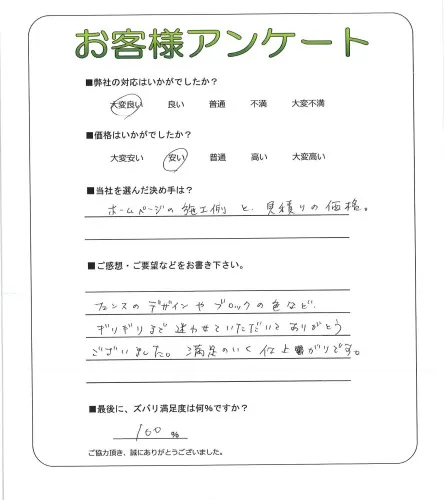 お客様アンケート
■弊社の対応はいかがでしたか?
大変良い 良い 普通 不満 大変不満
■価格はいかがでしたか?
大変安い 安い 普通 高い 大変高い
■当社を選んだ決め手は?
ホームページの施工例と、見積りの価格。
■ご感想・ご要望などをお書き下さい。
フェンスのデザインやブロックの色など、
ギリギリまで迷わせていただいてありがとう
ございました。満足のいく仕上がりです。
■最後に、ズバリ満足度は何%ですか?
100 %
ご協力頂き、誠にありがとうございました。